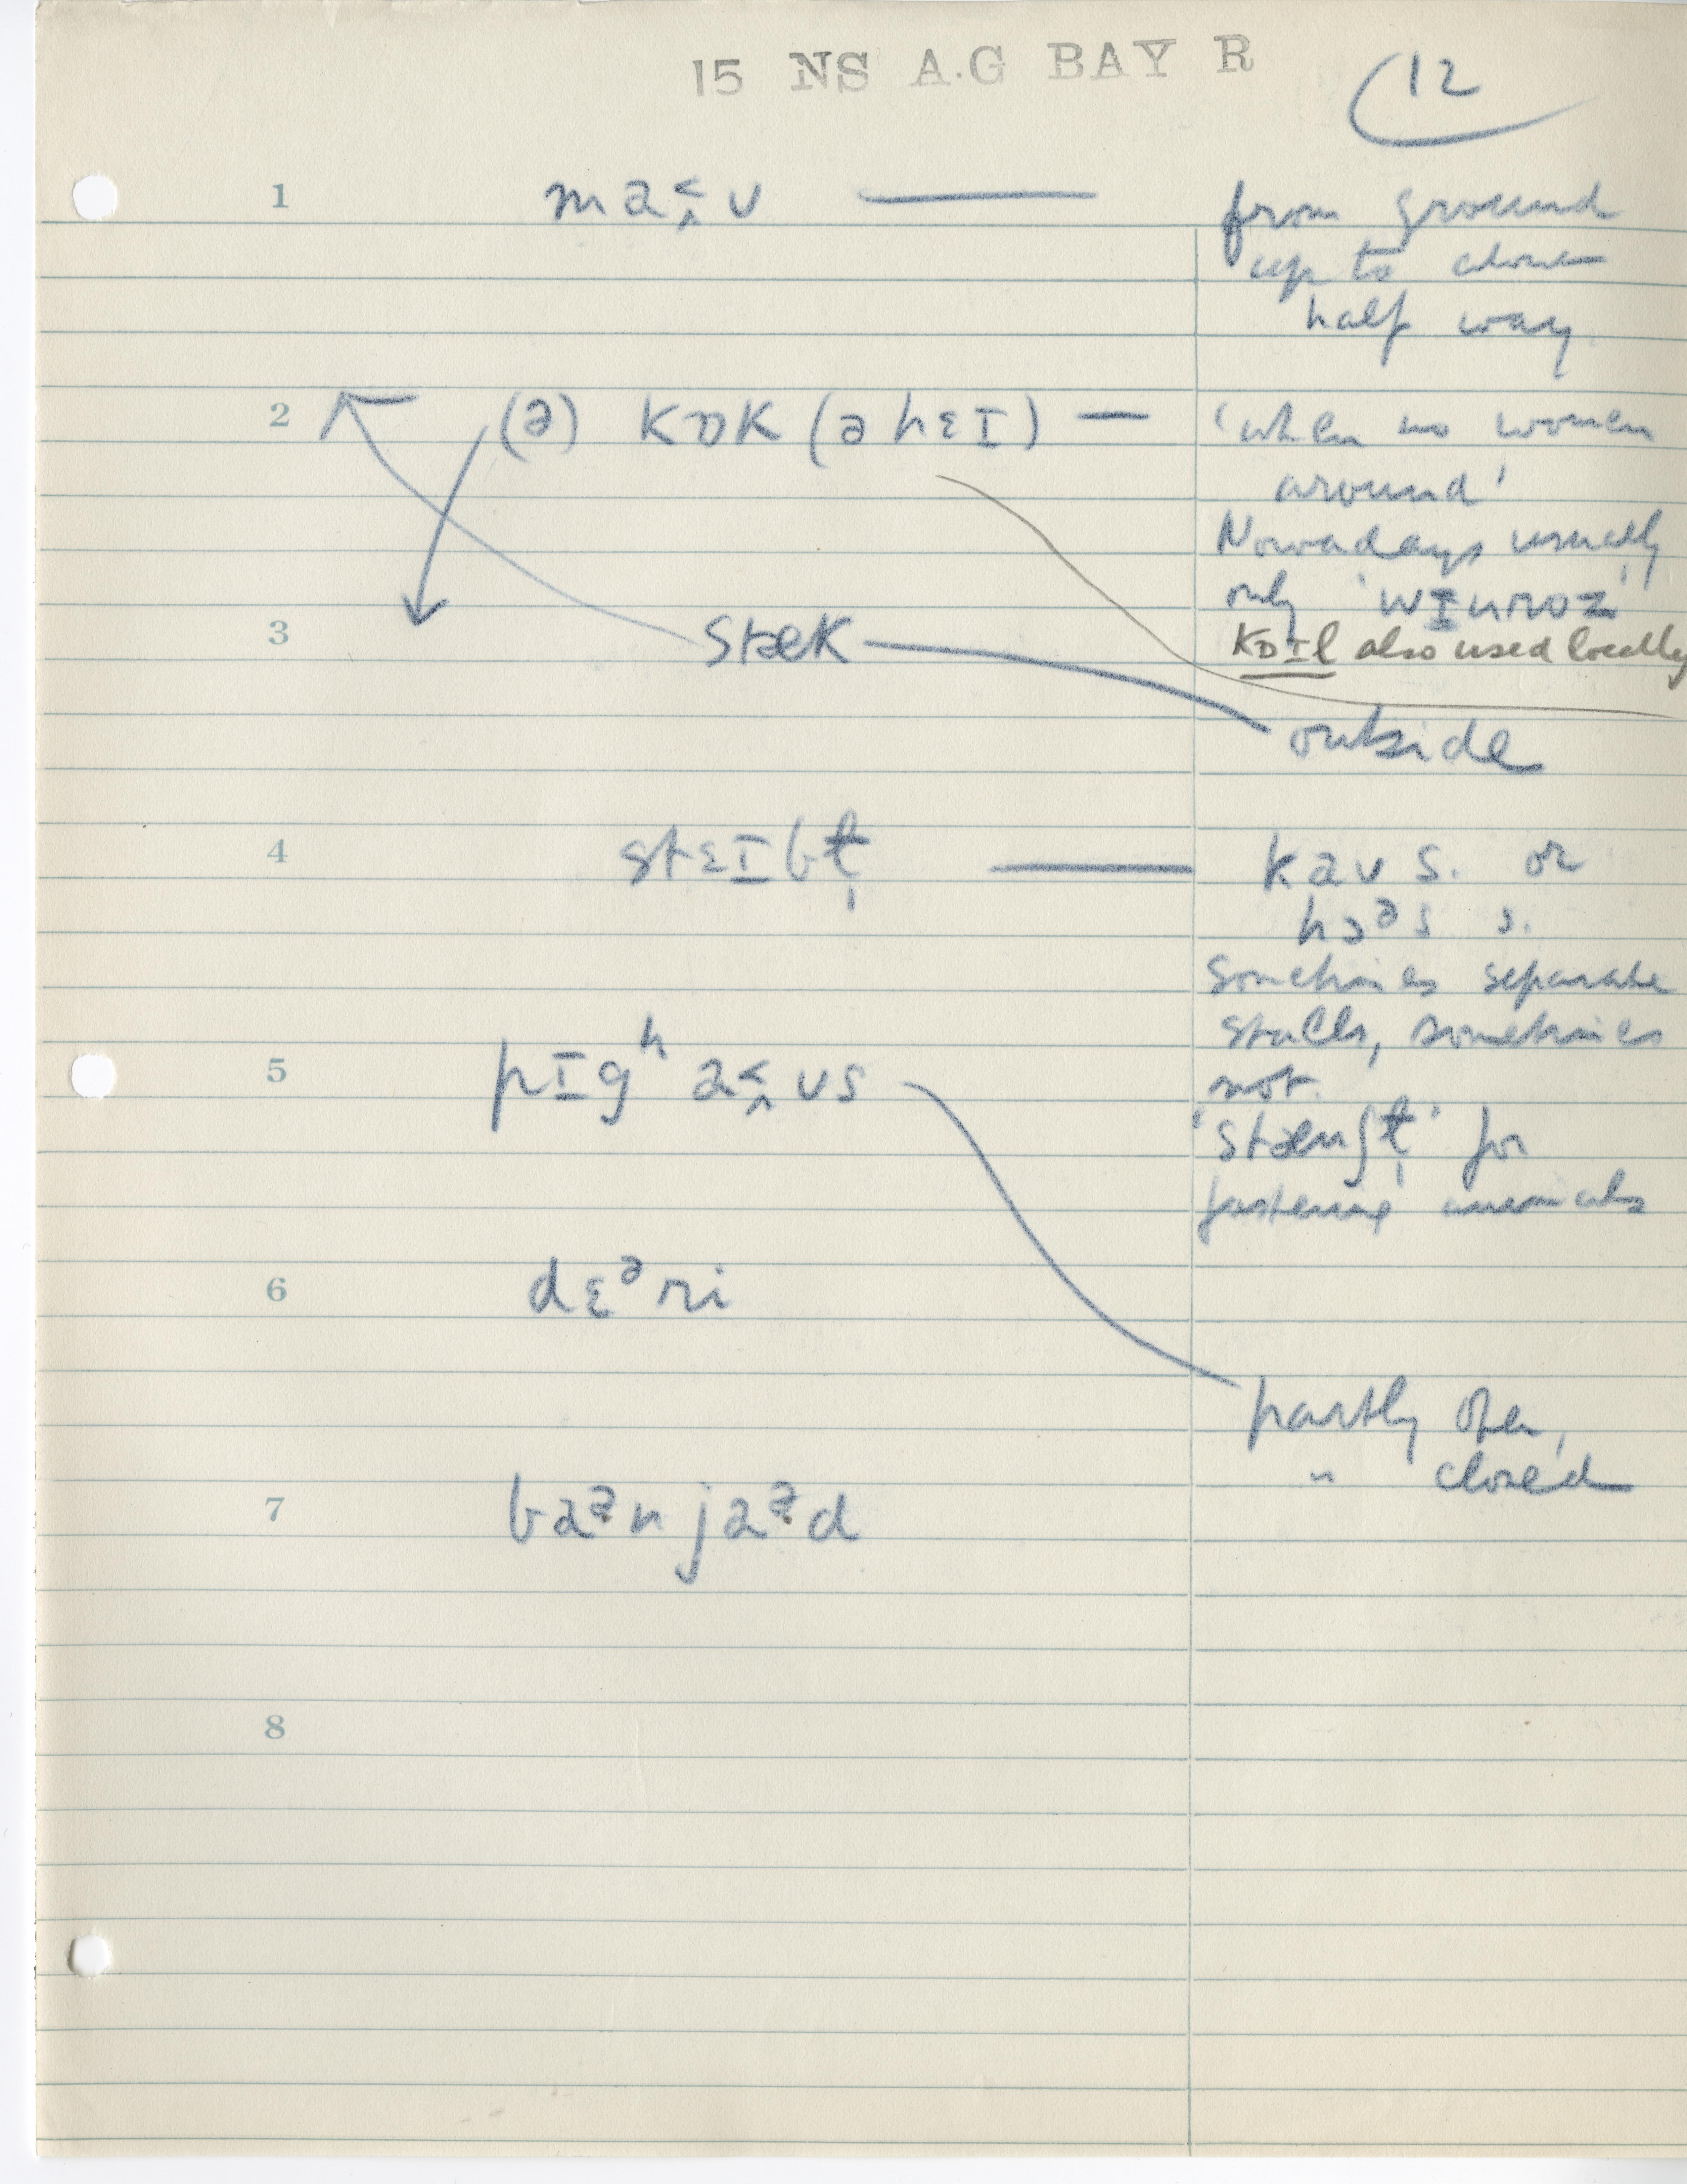 15 NS A.G BAY R
12
1 ma˂̭ʊ — from ground
up to about
half way
2 (ə) kɒk (ə hɛɪ) — 'when no women
around'
Nowadays usually
only 'wɪnroz'
kɒɪl also used locally
3 stæk — outside
4 stɛɪbɫ̩ — kaʊ s. or
hɔᵊs s.
Sometimes separate
stalls, sometimes
not.
'stænʃɫ̩' for
fastening animals
5 pɪgʰa˂̭ʊs
partly open,
" closed
6 dɛᵊri
7 baᵊ̣n jaᵊ̣d
8